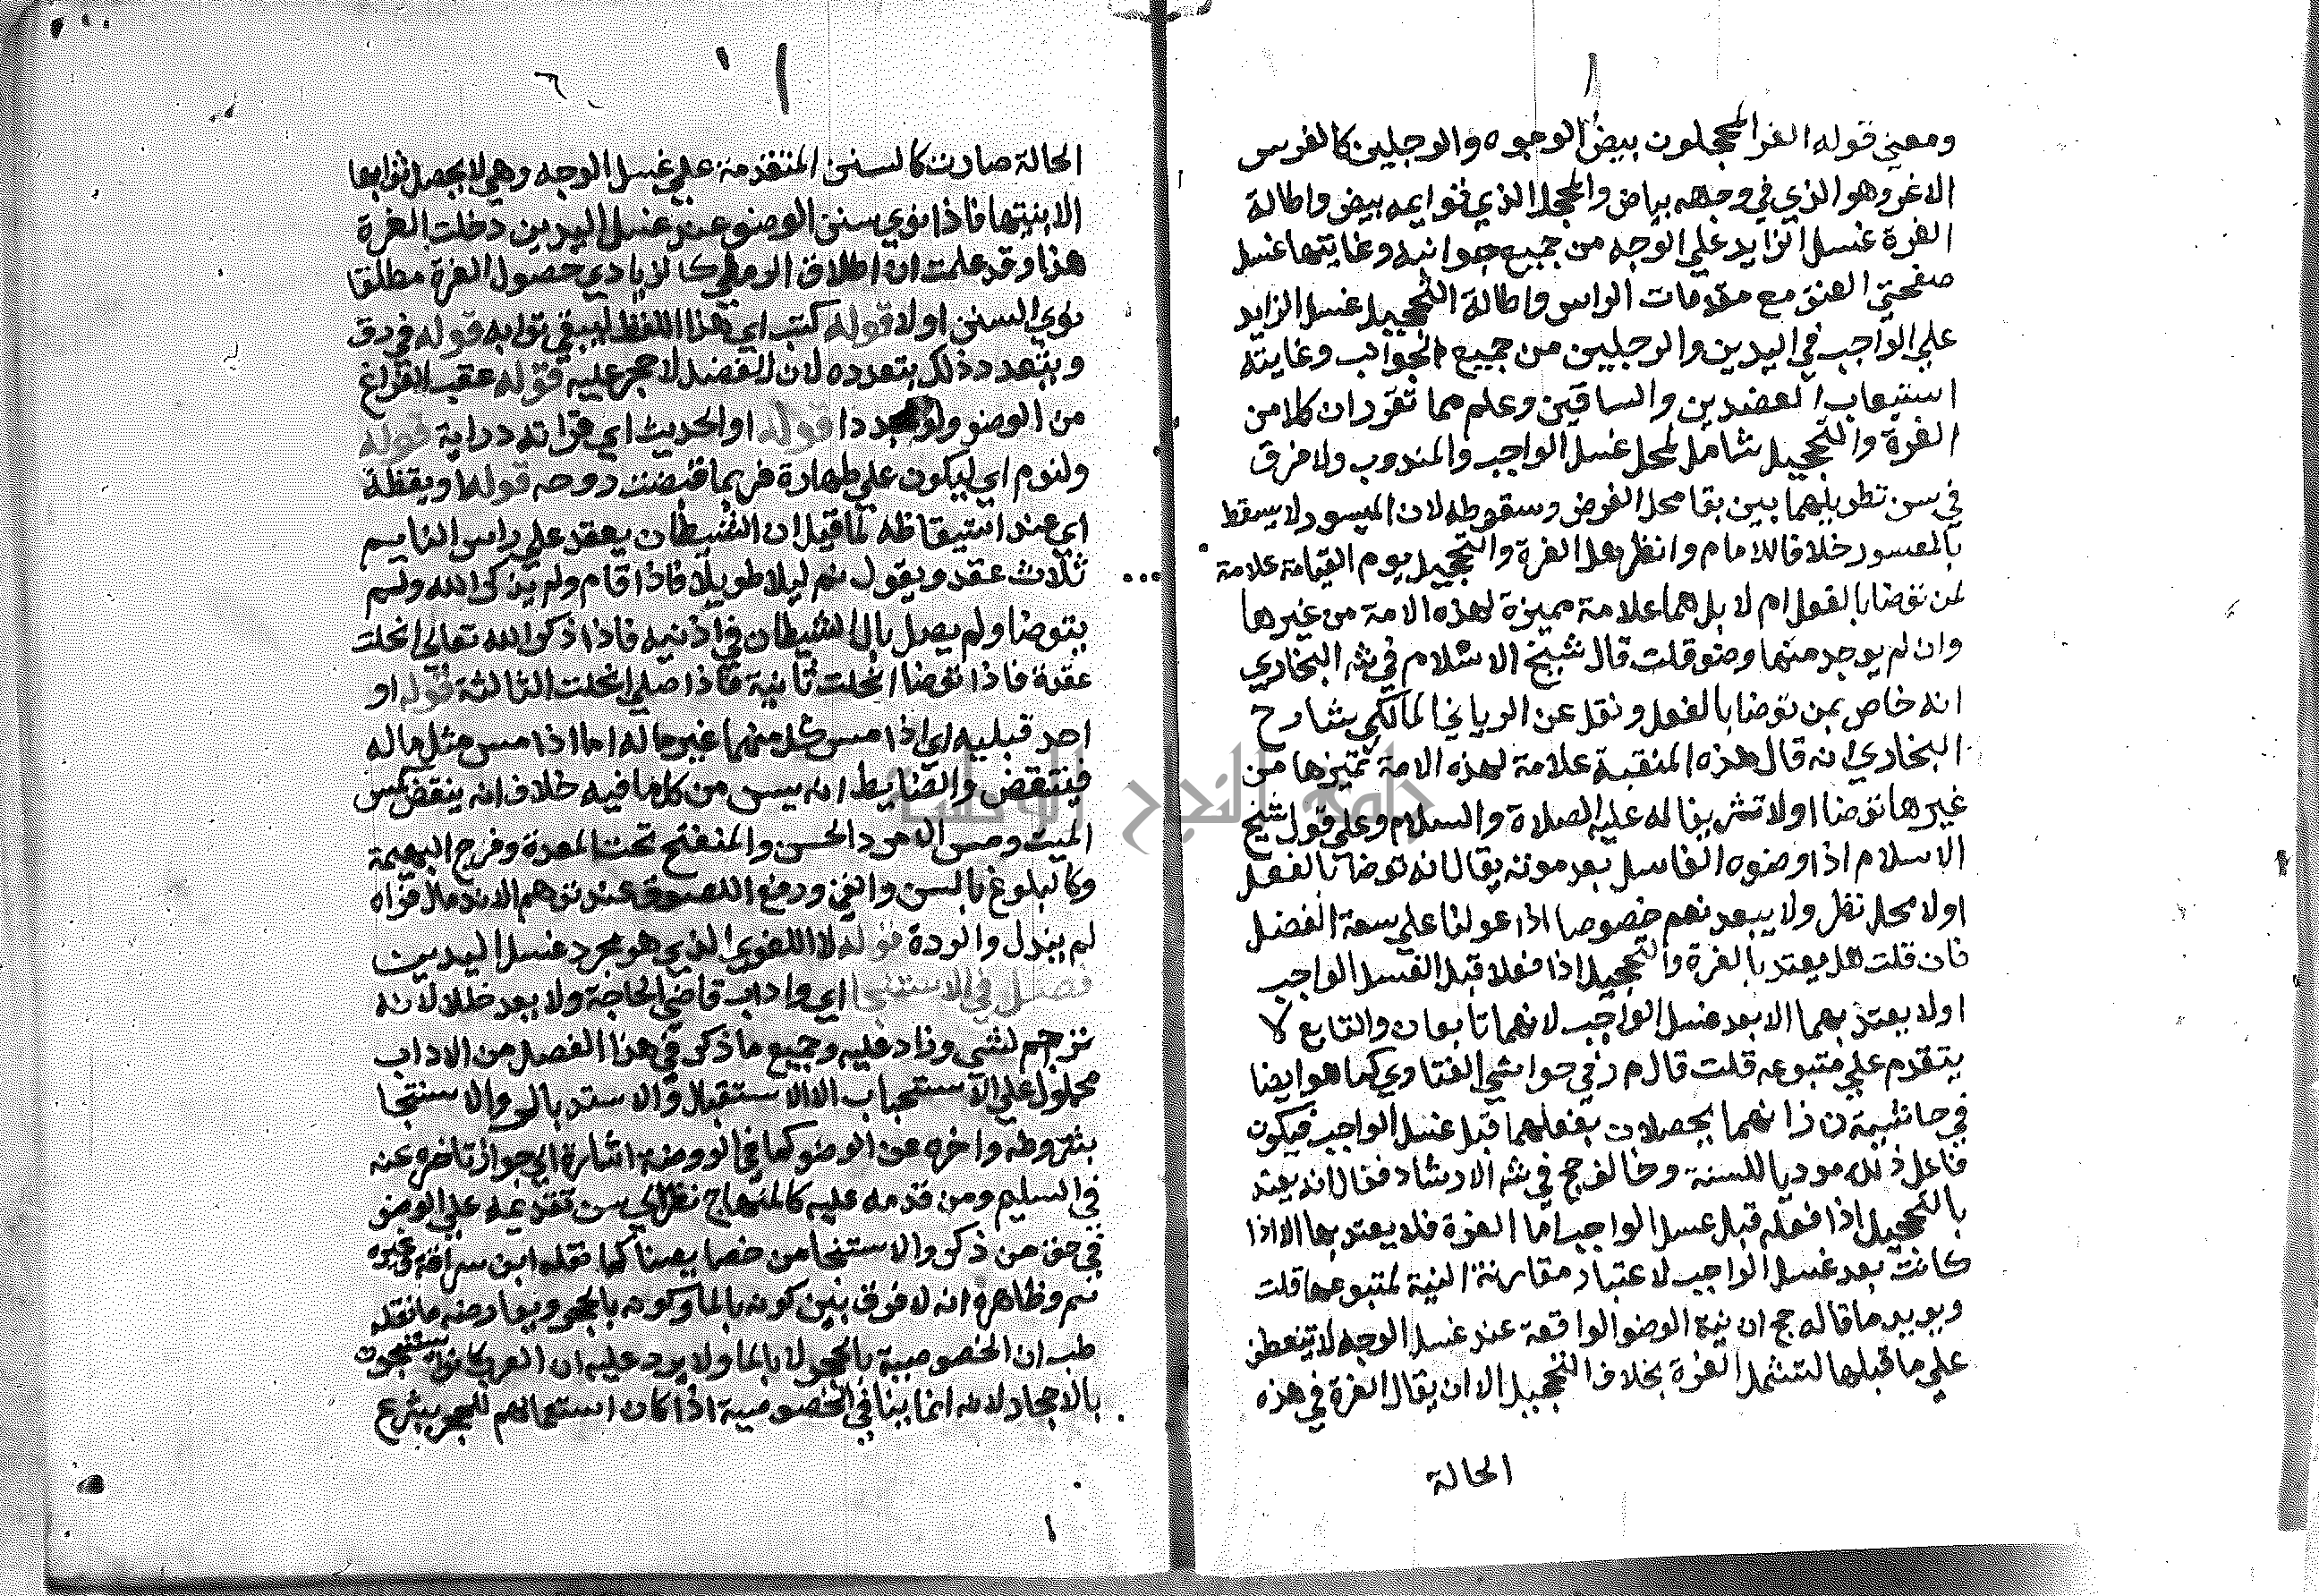 ومعني قوله الغر المحجلون بيض الوجوه والرجلين كالفرس
الاغر وهو الذي في وجهه بياض والمحجل الذي قوايمه بيض واطالة
الغرة غسل الزايد علي الوجه من جميع جوانبه وغايتها غسل
صفحتي العنق مع مقدمات الراس واطالة التحجيل غسل الزايد
علي الواجب في اليدين والرجلين من جميع الجوانب وغايته
استيعاب العضدين والساقين وعلم مما تقرر ان كلا من
الغرة والتحجيل شامل لمحل غسل الواجب والمندوب ولا فرق
في سن تطويلهما بين بقا محل الفرض وسقوطه لان الميسور لا يسقط
بالمعسور خلافا للامام وانظر هل الغرة والتحجيل يوم القيامة علامة
لمن توضا بالفعل ام لا بل هما علامة مميزة لهذه الامة من غيرها
وان لم يوجد منها وضو قلت قال شيخ الاسلام في شه البخاري
انه خاص بمن توضا بالفعل ونقل عن الرياني المالكي شارح
البخاري انه قال هذه المنقبة علامة لهذه الامة تميزها من
غيرها توضا اولا تشريفا له عليه الصلاة والسلام وعلي قول شيخ
الاسلام اذا وضوه الغاسل بعد موته يقال انه توضا بالفعل
اولا محل نظر ولا يبعد نعم خصوصا اذا عولنا علي سعة الفضل
فان قلت هل يعتد بالغرة والتحجيل اذا فعلا قبل الغسل الواجب
اولا يعتد بهما الا بعد غسل الواجب لانهما تابعان والتابع لا
يتقدم علي متبوعه قلت قال م ر في حواشي الفتاوي كما هو ايضا
في حاشية ن ز انهما يحصلان بفعلهما قبل غسل الواجب فيكون
فاعل ذلك موديا للسنة وخالف حج في شه الارشاد فقال انه يعتد
بالتحجيل اذا فعله قبل غسل الواجب اما الغرة فلا يعتد بها الا اذا
كانت بعد غسل الواجب لاعتبار مقارنة النية لمتبوعها قلت
ويويد ما قاله حج ان نية الوضو الواقعة عند غسل الوجه لا تنعطف
علي ما قبلها لتشمل الغرة بخلاف التحجيل الا ان يقال الغرة في هذه
الحالة
٦
الحالة صارت كالسنن المتقدمة علي غسل الوجه وهي لا يحصل ثوابها
الا بنيتها فاذا نوي سنن الوضو عند غسل اليدين دخلت الغرة
هذا وقد علمت ان اطلاق الرملي كالزيادي حصول الغرة مطلقا
نوي السنن اولا قوله كتب اي هذا اللفظ ليبقي ثوابه قوله في رق
ويتعدد ذلك بتعدده لان الفضل لا حجر عليه قوله عقب الفراغ
من الوضو ولو مجددا قوله او الحديث اي قراته دراية قوله
ولنوم اي ليكون علي طهارة فربما قبضت روحه قوله او يقظة
اي عند استيقاظه لما قيل ان الشيطان يعقد علي راس النايم
ثلاث عقد ويقول نم ليلا طويلا فاذا قام ولم يذكر الله ولم
يتوضا ولم يصل بال الشيطان في اذنيه فاذا ذكر الله تعالي انحلت
عقدة فاذا توضا انحلت ثانية فاذا صلي انحلت الثالثة قوله او
احد قبليه اي اذا مس كل منهما غير ماله اما اذا مس مثل ماله
فينتقض والضابط انه يسن من كل ما فيه خلاف انه ينقض كمس
الميت ومس الامرد الحسن والمنفتح تحت المعدة وفرج البهيمة
وكالبلوغ بالسن والقي ورفع اللصوق عند توهم الاندمال فراه
لم يندمل والردة قوله لا اللغوي الذي هو مجرد غسل اليدين
فصل في الاستنجا اي واداب قاضي الحاجة ولا يعد خللا لانه
ترجم لشي وزاد عليه وجميع ما ذكر في هذا الفصل من الاداب
محمول علي الاستحباب الا الاستقبال والاستدبار والاستنجا
بشروطه واخره عن الوضو كما في الروضة اشارة الي جواز تاخره عنه
في السليم ومن قدمه عليه كالمنهاج نظر الي سن تقديمه علي الوضو
في حق من ذكر والاستنجا من خصايصنا كما نقله ابن سراقة وغيره
سم وظاهره انه لا فرق بين كونه بالما وكونه بالحجر ويعارضه ما نقله
طب ان الخصوصية بالحجر لا بالما ولا يرد عليه ان العرب كانوا يستنجون
بالاحجار لانه انما ينافي الخصوصية اذا كان استعمالهم للحجر بشرع
جامعة النجاح الوطنية